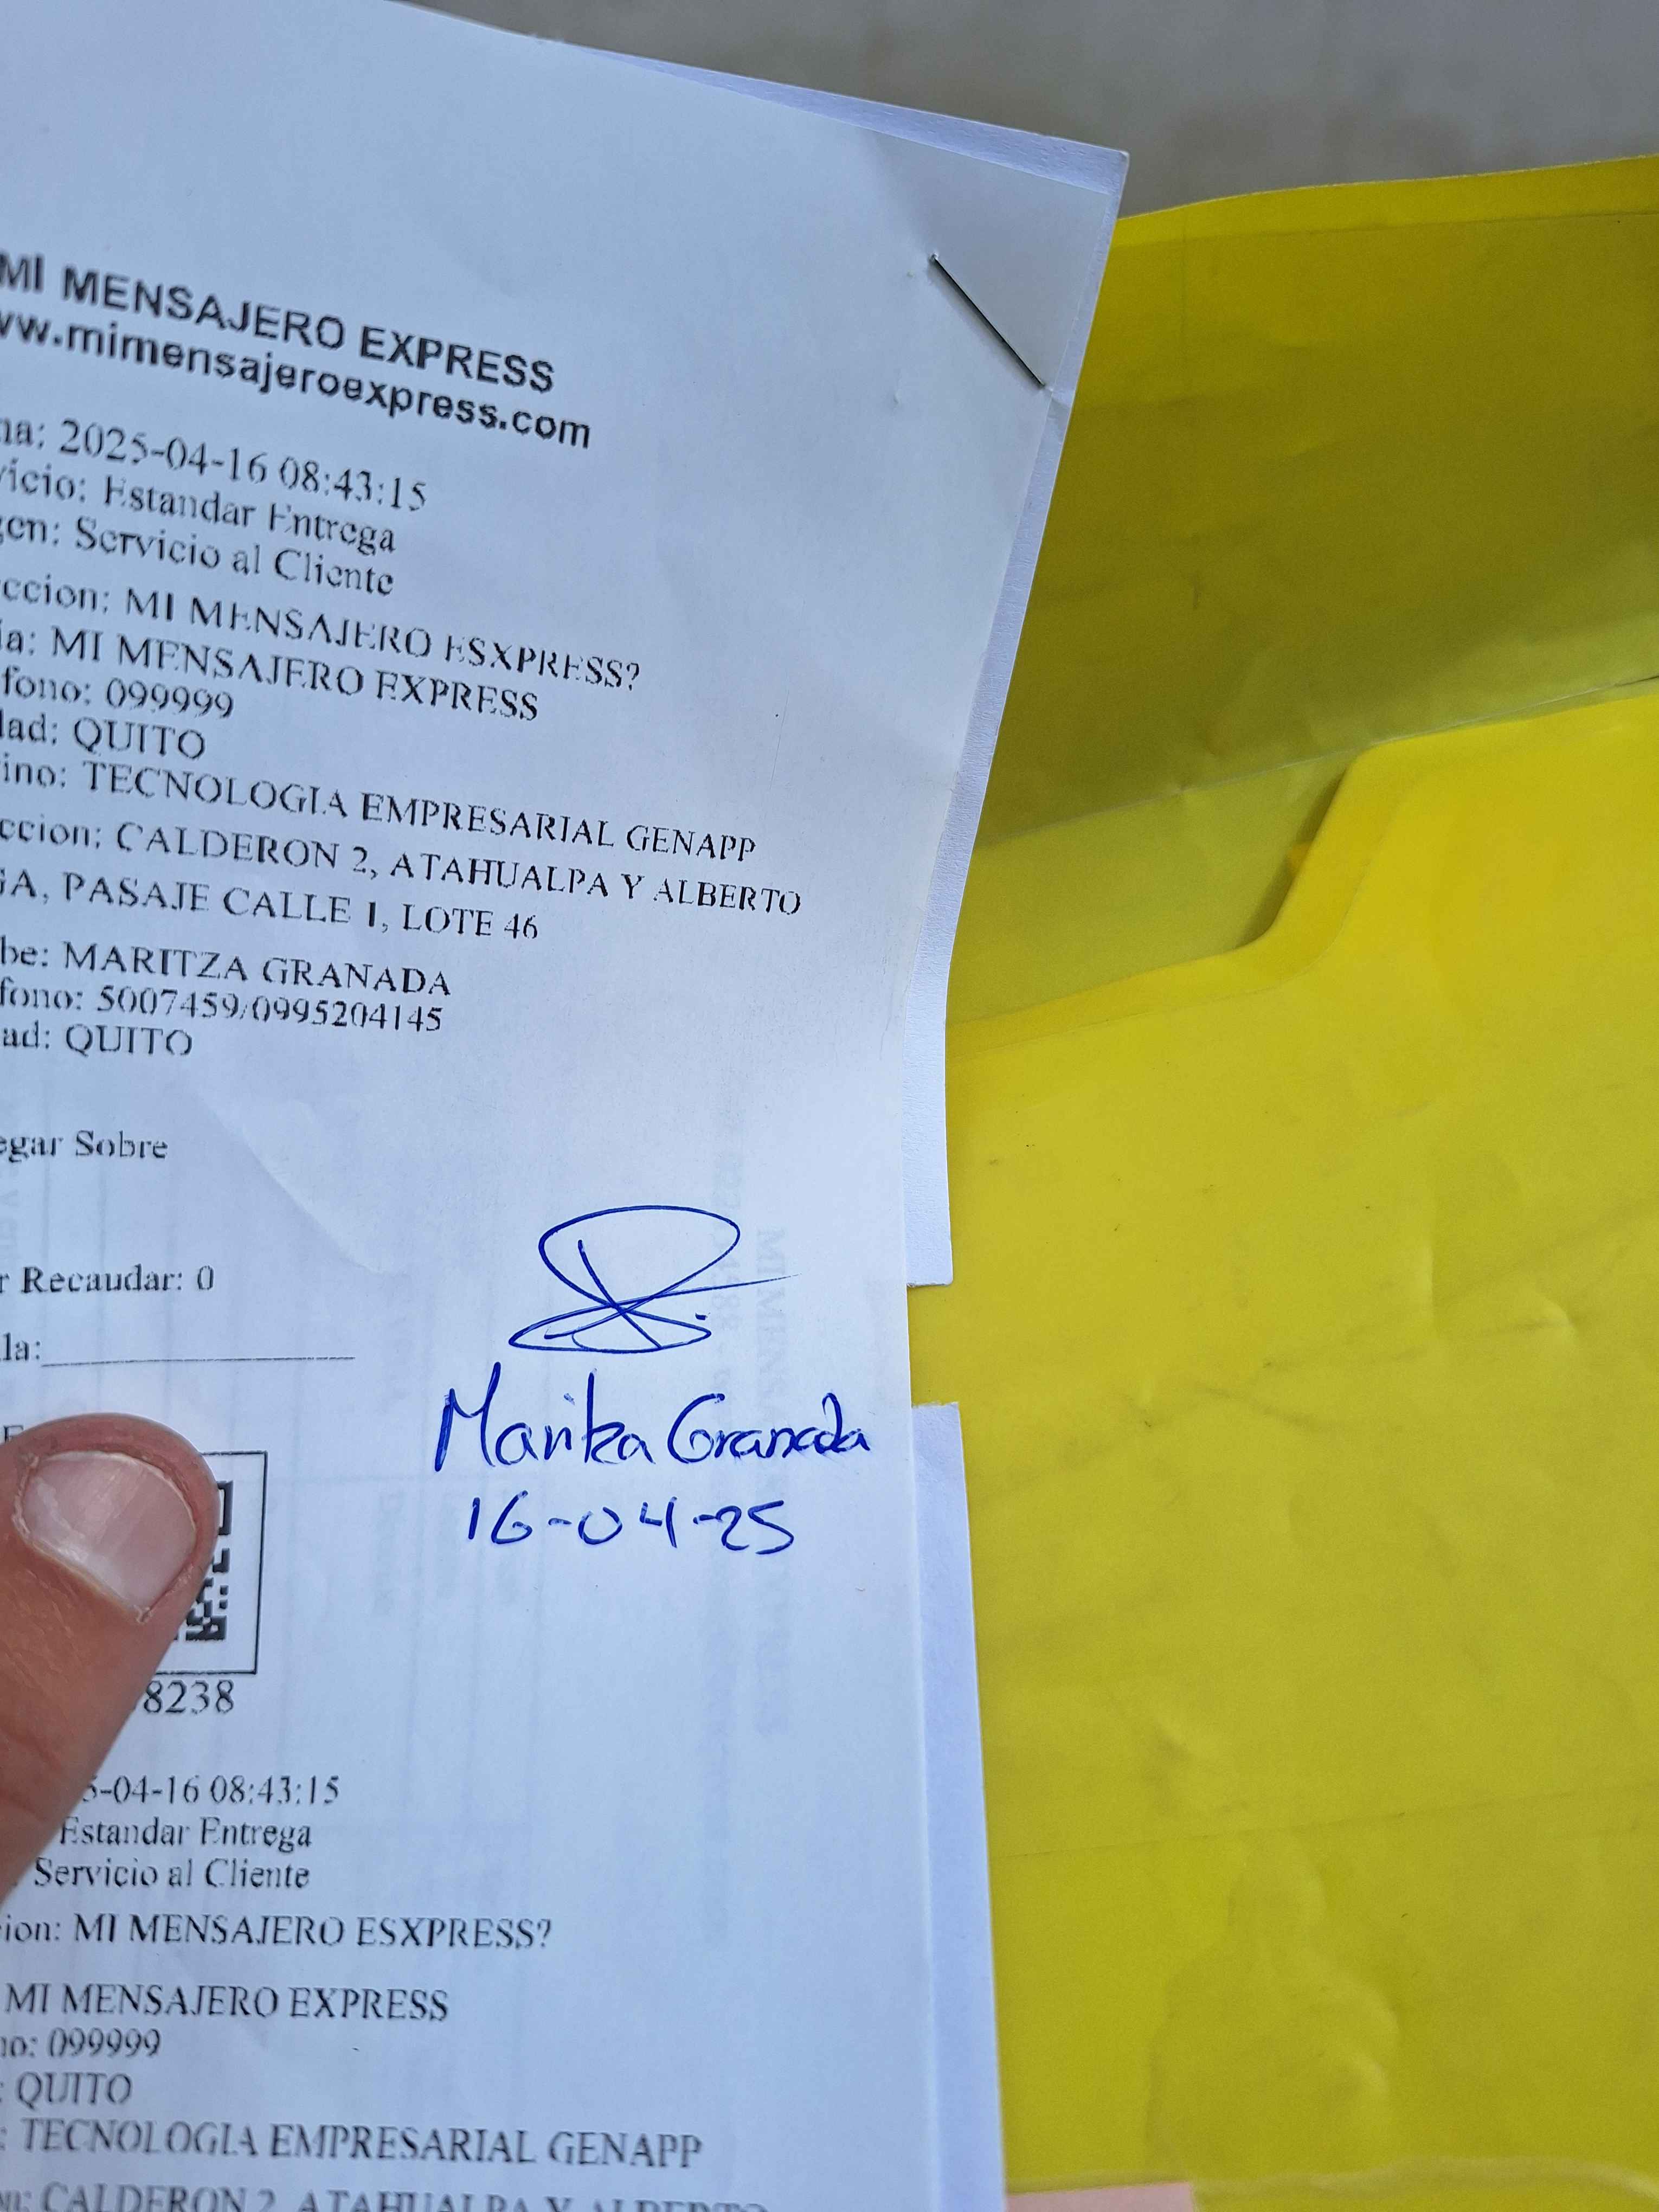 MI MENSAJERO EXPRESS
ww.mimensajeroexpress.com
ha: 2025-04-16 08:43:15
vicio: Estandar Entrega
gen: Servicio al Cliente
ccion: MI MENSAJERO ESXPRESS?
ia: MI MENSAJERO EXPRESS
fono: 099999
dad: QUITO
ino: TECNOLOGIA EMPRESARIAL GENAPP
ccion: CALDERON 2, ATAHUALPA Y ALBERTO
GA, PASAJE CALLE 1, LOTE 46
be: MARITZA GRANADA
fono: 5007459/0995204145
ad: QUITO
egar Sobre
r Recaudar: 0
la:
Maritza Granada
16-04-25
8238
5-04-16 08:43:15
Estandar Entrega
Servicio al Cliente
ion: MI MENSAJERO ESXPRESS?
MI MENSAJERO EXPRESS
no: 099999
: QUITO
: TECNOLOGIA EMPRESARIAL GENAPP
n: CALDERON 2, ATAHUALPA Y ALBERTO